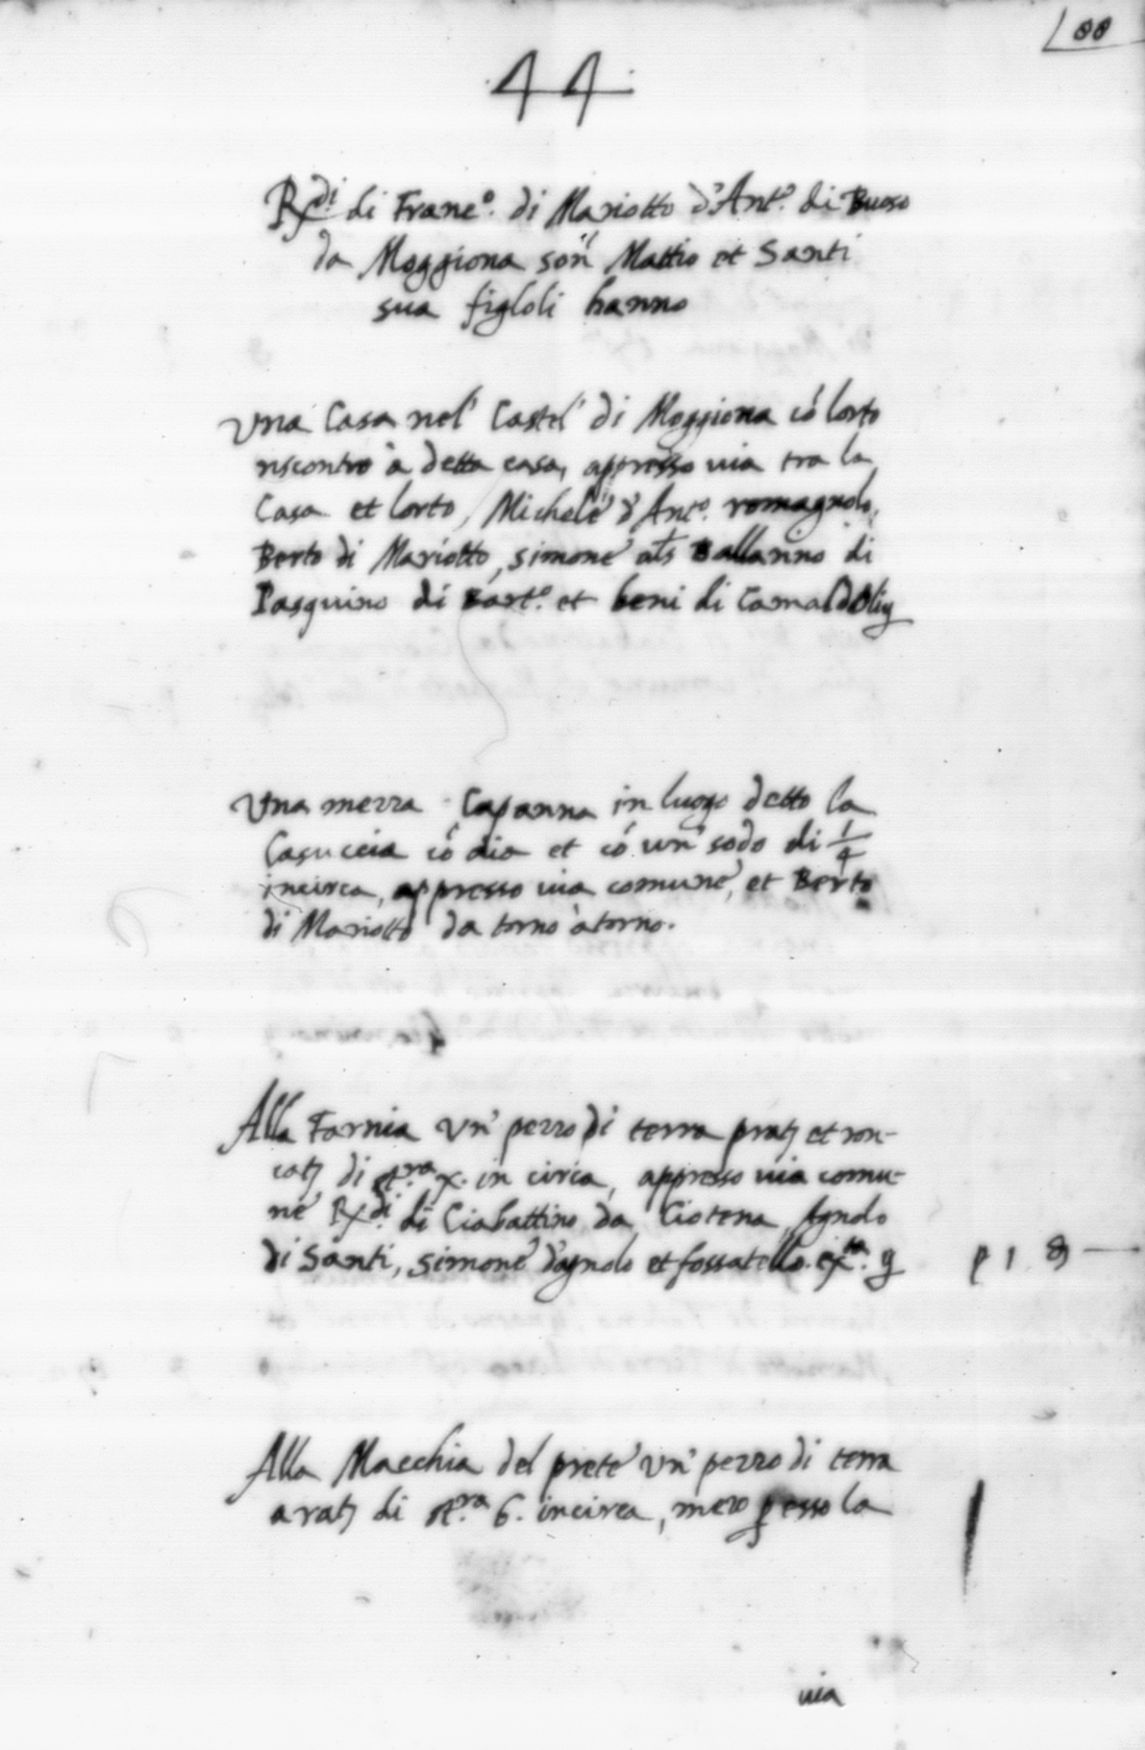 88
44
Rx.di di Franc.o di Mariotto d'Ant.o di Buoso
da Moggiona son Mattio et Santi
sua figloli hanno
Una Casa nel Castel di Moggiona cō lorto
riscontro à detta casa, appresso uia tra la
Casa et lorto, Michele d'Ant.o romagnolo,
Berto di Mariotto, simone als Ballanno di
Pasquino di Bart.o et beni di Camaldoli
Una mezza Capanna in luogo detto la
Casuccia cō aia et cō un sodo di 1/4
incirca, appresso uia comune, et Berto
di Mariotto da torno à torno.
Alla Farnia un pezzo di terra prat. et ron-
cat. di st.ra x. in circa, appresso uia comu-
ne Rx.di di Ciabattino da Giotena, Agnolo
di Santi, simone d'agnolo et fossatello.
Alla Macchia del prete un pezzo di terra
arat. di st.ra 6. incirca, mezo esso la
uia